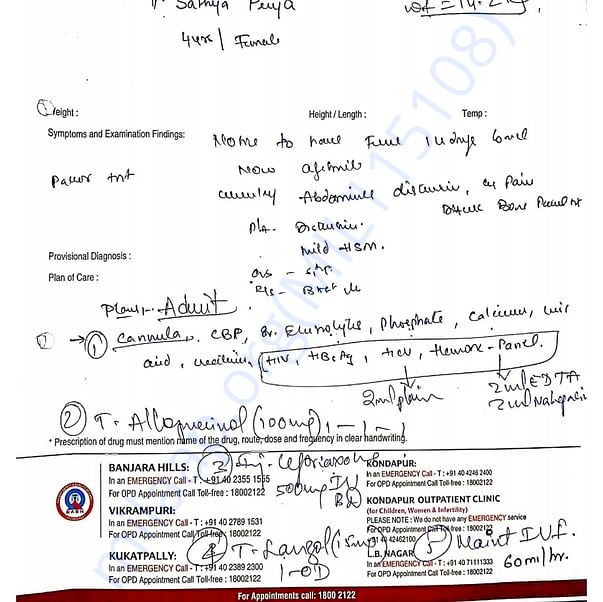 Sathya Priya
4yrs / Female
Weight :
Height / Length :
Temp :
Symptoms and Examination Findings:
to have
Now afebrile
Abdominal distension, c/o Pain
P/A - Distension.
Mild HSM.
Provisional Diagnosis :
Plan of Care :
Plan :- Admit
→ ① Cannula, CBP, Sr. Electrolyte, Phosphate, Calcium, uric
acid, creatinine, HIV, HBsAg, HCV, Hemorr - Panel.
2ml plain
2ml EDTA
② T. Allopurinol (100mg) 1-1-1
* Prescription of drug must mention name of the drug, route, dose and frequency in clear handwriting.
③ Inj. Ceftriaxone
500mg IV
BD
④ T. Lanzol (15mg)
1-OD
⑤ Maint IVF.
60ml/hr.
BANJARA HILLS:
In an EMERGENCY Call - T : +91 40 2355 1555
For OPD Appointment Call Toll-free : 18002122
VIKRAMPURI:
In an EMERGENCY Call - T : +91 40 2789 1531
For OPD Appointment Call Toll-free : 18002122
KUKATPALLY:
In an EMERGENCY Call - T : +91 40 2389 2300
For OPD Appointment Call Toll-free : 18002122
KONDAPUR:
In an EMERGENCY Call - T : +91 40 4246 2400
For OPD Appointment Call Toll-free : 18002122
KONDAPUR OUTPATIENT CLINIC
(for Children, Women & Infertility)
PLEASE NOTE : We do not have any EMERGENCY service
For OPD Appointment Call Toll-free : 18002122
+91 40 42462100
L.B. NAGAR
In an EMERGENCY Call - T : +91 40 71111333
For OPD Appointment Call Toll-free : 18002122
For Appointments call: 1800 2122